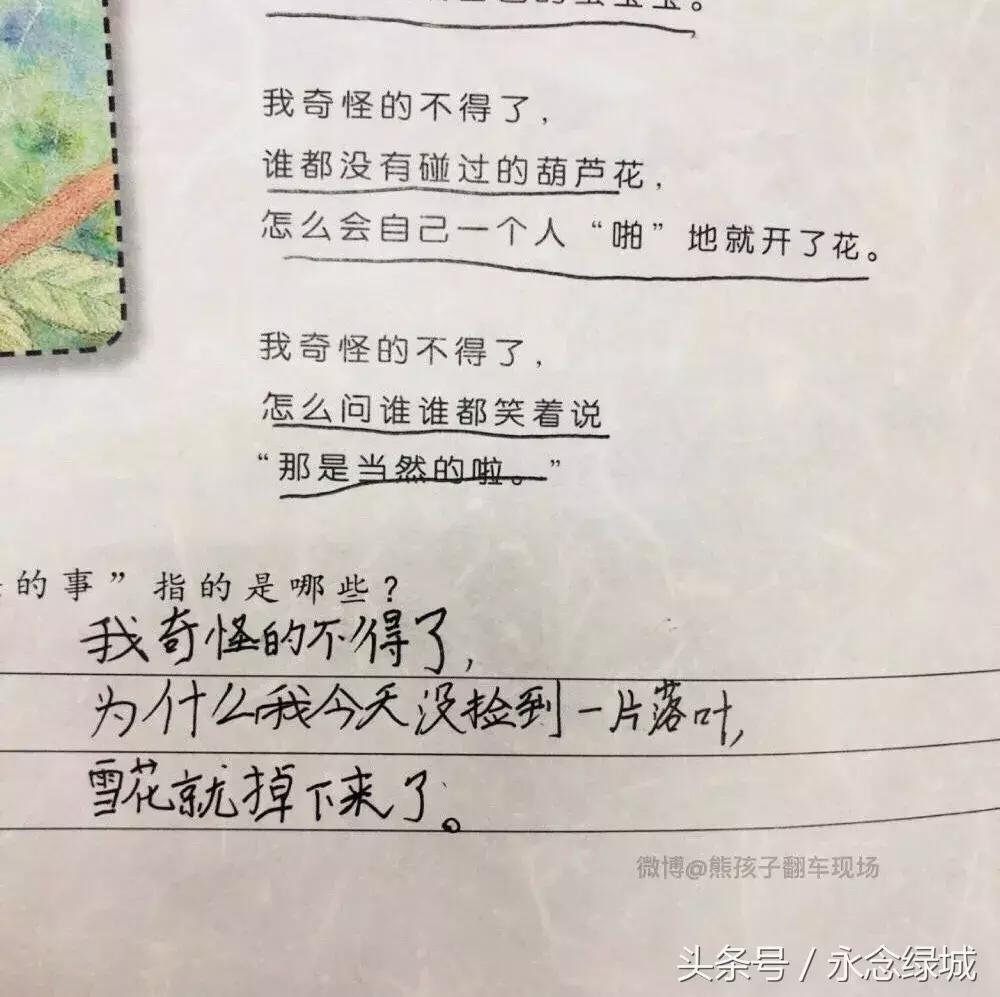 我奇怪的不得了，
谁都没有碰过的葫芦花，
怎么会自己一个人“啪”地就开了花。
我奇怪的不得了，
怎么问谁谁都笑着说
“那是当然的啦。”
的事”指的是哪些？
我奇怪的不得了，
为什么我今天没捡到一片落叶，
雪花就掉下来了。
微博@熊孩子翻车现场
头条号／永念绿城